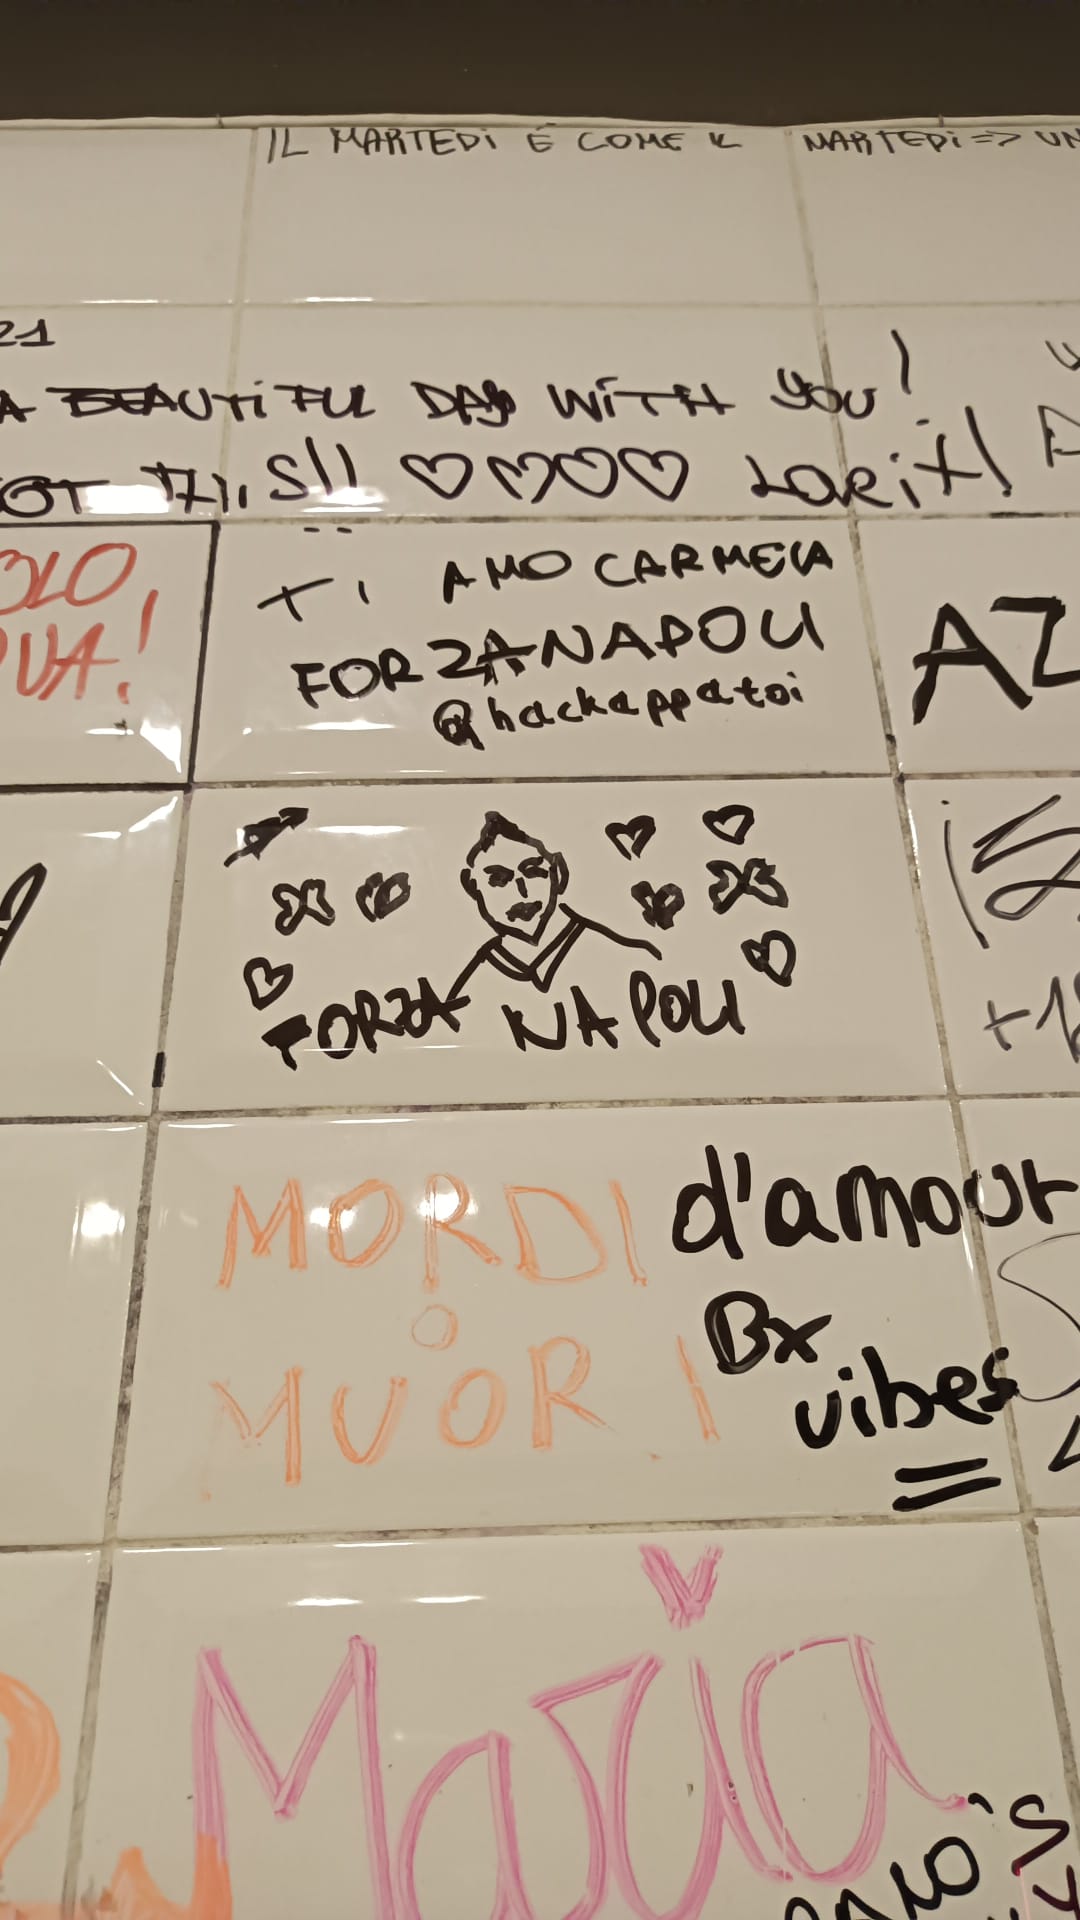 IL MARTEDÌ É COME IL
MARTEDì => UN
21
A BEAUTIFUL DAY WITH YOU!
OT THIS!! ♡♡♡♡
OLO
TI AMO CARMELA
FORZA NAPOLI
@hackappatoi
AZ
FORZA NAPOLI
MORDI
O
MUORI
d'amour
Bx
vibes
Maria